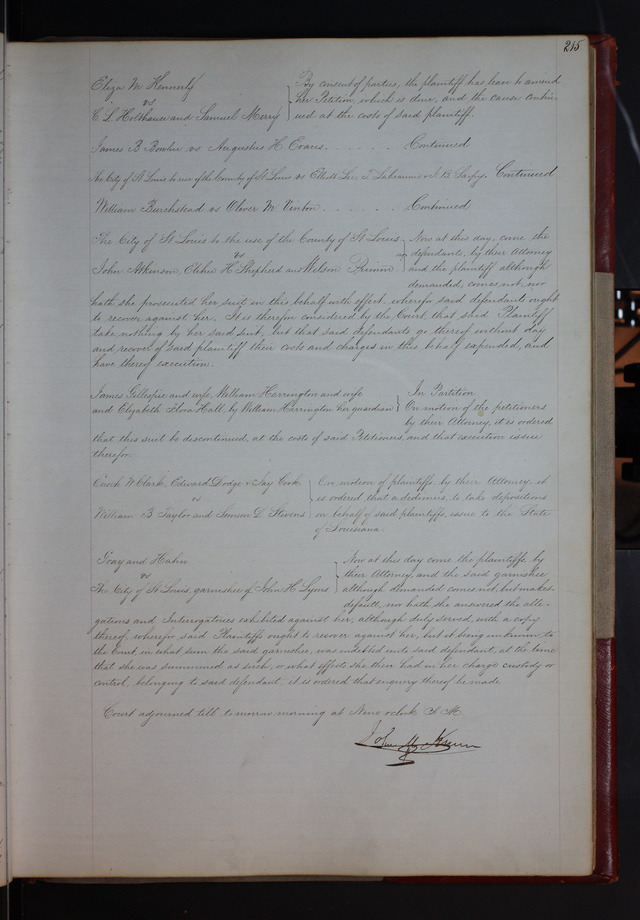 215
Eliza M Kennerly } By consent of parties, the plaintiff has leave to amend
vs her Petition, which is done, and the cause contin-
C L Holthaus and Samuel Merry ued at the costs of said plaintiff.
James B Bowlin vs Augustus H Evans. . . . . . Continued
The City of St Louis to use of the County of St Louis vs Continued
William Burchstead vs Oliver M Vinton . . . . . . Continued
The City of St Louis to the use of the County of St Louis } Now at this day, come the
vs defendants, by their Attorney
John Atkinson, H Shepherd and Wilson Primm and the plaintiff although
demanded, comes not, nor
hath she prosecuted her suit in this behalf with effect, wherefore said defendants ought
to recover against her. It is therefore considered by the Court, that said Plaintiff
take nothing by her said suit, but that said defendants go thereof without day
and recover of said plaintiff their costs and charges in this behalf expended, and
have thereof execution.
James Gillespie and wife, William Harrington and wife } In Partition
and Elizabeth Flora Hall, by William Harrington her guardian On motion of the petitioners
by their Attorney, it is ordered
that this suit be discontinued, at the costs of said Petitioners, and that execution issue
therefor.
Enoch W Clark, Edward Dodge & Jay Cook } On motion of plaintiffs by their Attorney, it
vs is ordered that a dedimus, to take depositions
William B Taylor and Simson D Stevens on behalf of said plaintiffs, issue to the State
of Louisiana.
Gray and Hahn } Now at this day come the plaintiffs, by
vs their Attorney, and the said garnishee
The City of St Louis, garnishee of John H Lyons although demanded comes not, but makes
default, nor hath she answered the alle-
gations and Interrogatories exhibited against her, although duly served, with a copy
thereof, wherefore said Plaintiffs ought to recover against her, but it being unknown to
the Court, in what sum the said garnishee, was indebted unto said defendant, at the time
that she was summoned as such, or what effects she then had in her charge custody or
control, belonging to said defendant, it is ordered that enquiry thereof be made.
Court adjourned till tomorrow morning at Nine oclock A M.